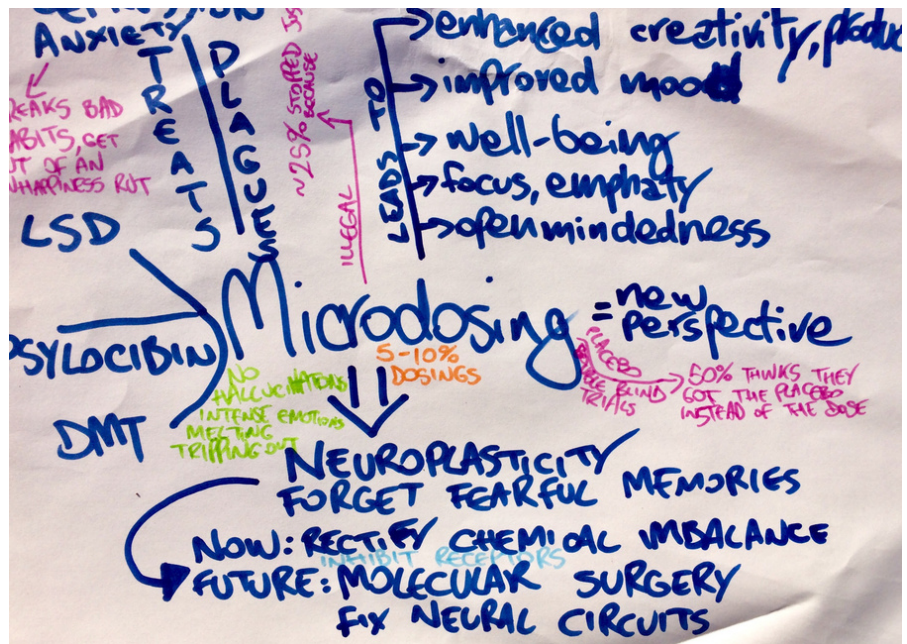 ANXIETY
BAD
GET
OF AN
RUT
TREATS
PLAGUES
~25% STOPPED
BECAUSE
ILLEGAL
LEADS TO
enhanced creativity,
improved mood
well-being
focus, emphaty
openmindedness
LSD
PSYLOCIBIN
DMT
Microdosing
= new
perspective
5-10%
DOSINGS
NO
HALLUCINATIONS
INTENSE EMOTIONS
MELTING
TRIPPING OUT
PLACEBO
DOUBLE BLIND
TRIALS
50% THINKS THEY
GOT THE PLACEBO
INSTEAD OF THE DOSE
NEUROPLASTICITY
FORGET FEARFUL MEMORIES
NOW: RECTIFY CHEMICAL IMBALANCE
INHIBIT RECEPTORS
FUTURE: MOLECULAR SURGERY
FIX NEURAL CIRCUITS